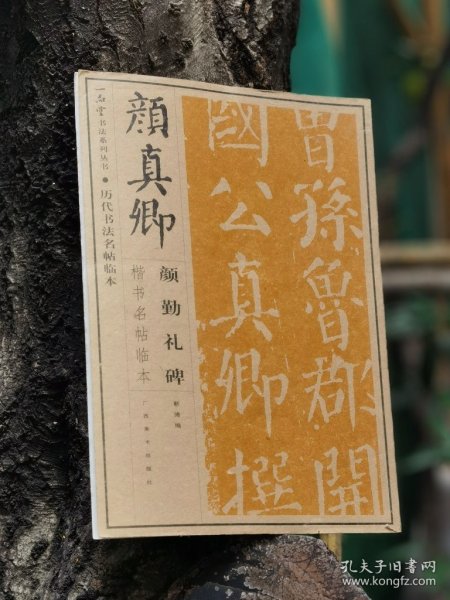 一品堂书法系列丛书·历代书法名帖临本
顔真卿
颜勤礼碑
楷书名帖临本
广西美术出版社
曾孫魯郡開
國公真卿撰
孔夫子旧书网
www.kongfz.com